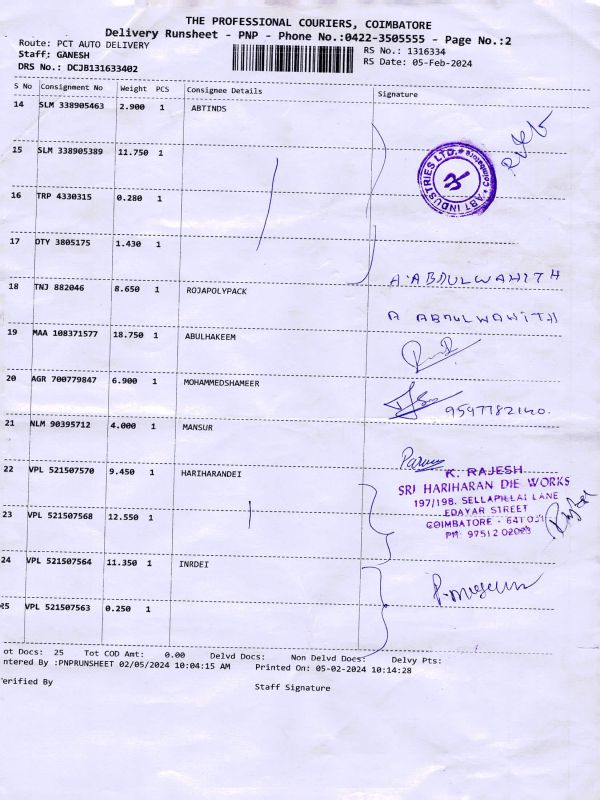 THE PROFESSIONAL COURIERS, COIMBATORE
Delivery Runsheet - PNP - Phone No.:0422-3505555 - Page No.:2
Route: PCT AUTO DELIVERY
RS No.: 1316334
Staff: GANESH
RS Date: 05-Feb-2024
DRS No.: DCJB131633402
S No Consignment No Weight PCS Consignee Details Signature
14 SLM 338905463 2.900 1 ABTINDS
15 SLM 338905389 11.750 1
ABT INDUSTRIES LTD. * Coimbatore *
16 TRP 4330315 0.280 1
17 OTY 3805175 1.430 1
A. ABDULWAHITH
18 TNJ 882046 8.650 1 ROJAPOLYPACK
A ABDULWAHITH
19 MAA 108371577 18.750 1 ABULHAKEEM
20 AGR 700779847 6.900 1 MOHAMMEDSHAMEER
9597782140.
21 NLM 90395712 4.000 1 MANSUR
22 VPL 521507570 9.450 1 HARIHARANDEI
K. RAJESH
SRI HARIHARAN DIE WORKS
197/198. SELLAPILLAI LANE
EDAYAR STREET
COIMBATORE - 641 001
PH: 97512 02003
23 VPL 521507568 12.550 1
24 VPL 521507564 11.350 1 INRDEI
25 VPL 521507563 0.250 1
ot Docs: 25 Tot COD Amt: 0.00 Delvd Docs: Non Delvd Docs: Delvy Pts:
ntered By :PNPRUNSHEET 02/05/2024 10:04:15 AM Printed On: 05-02-2024 10:14:28
erified By
Staff Signature